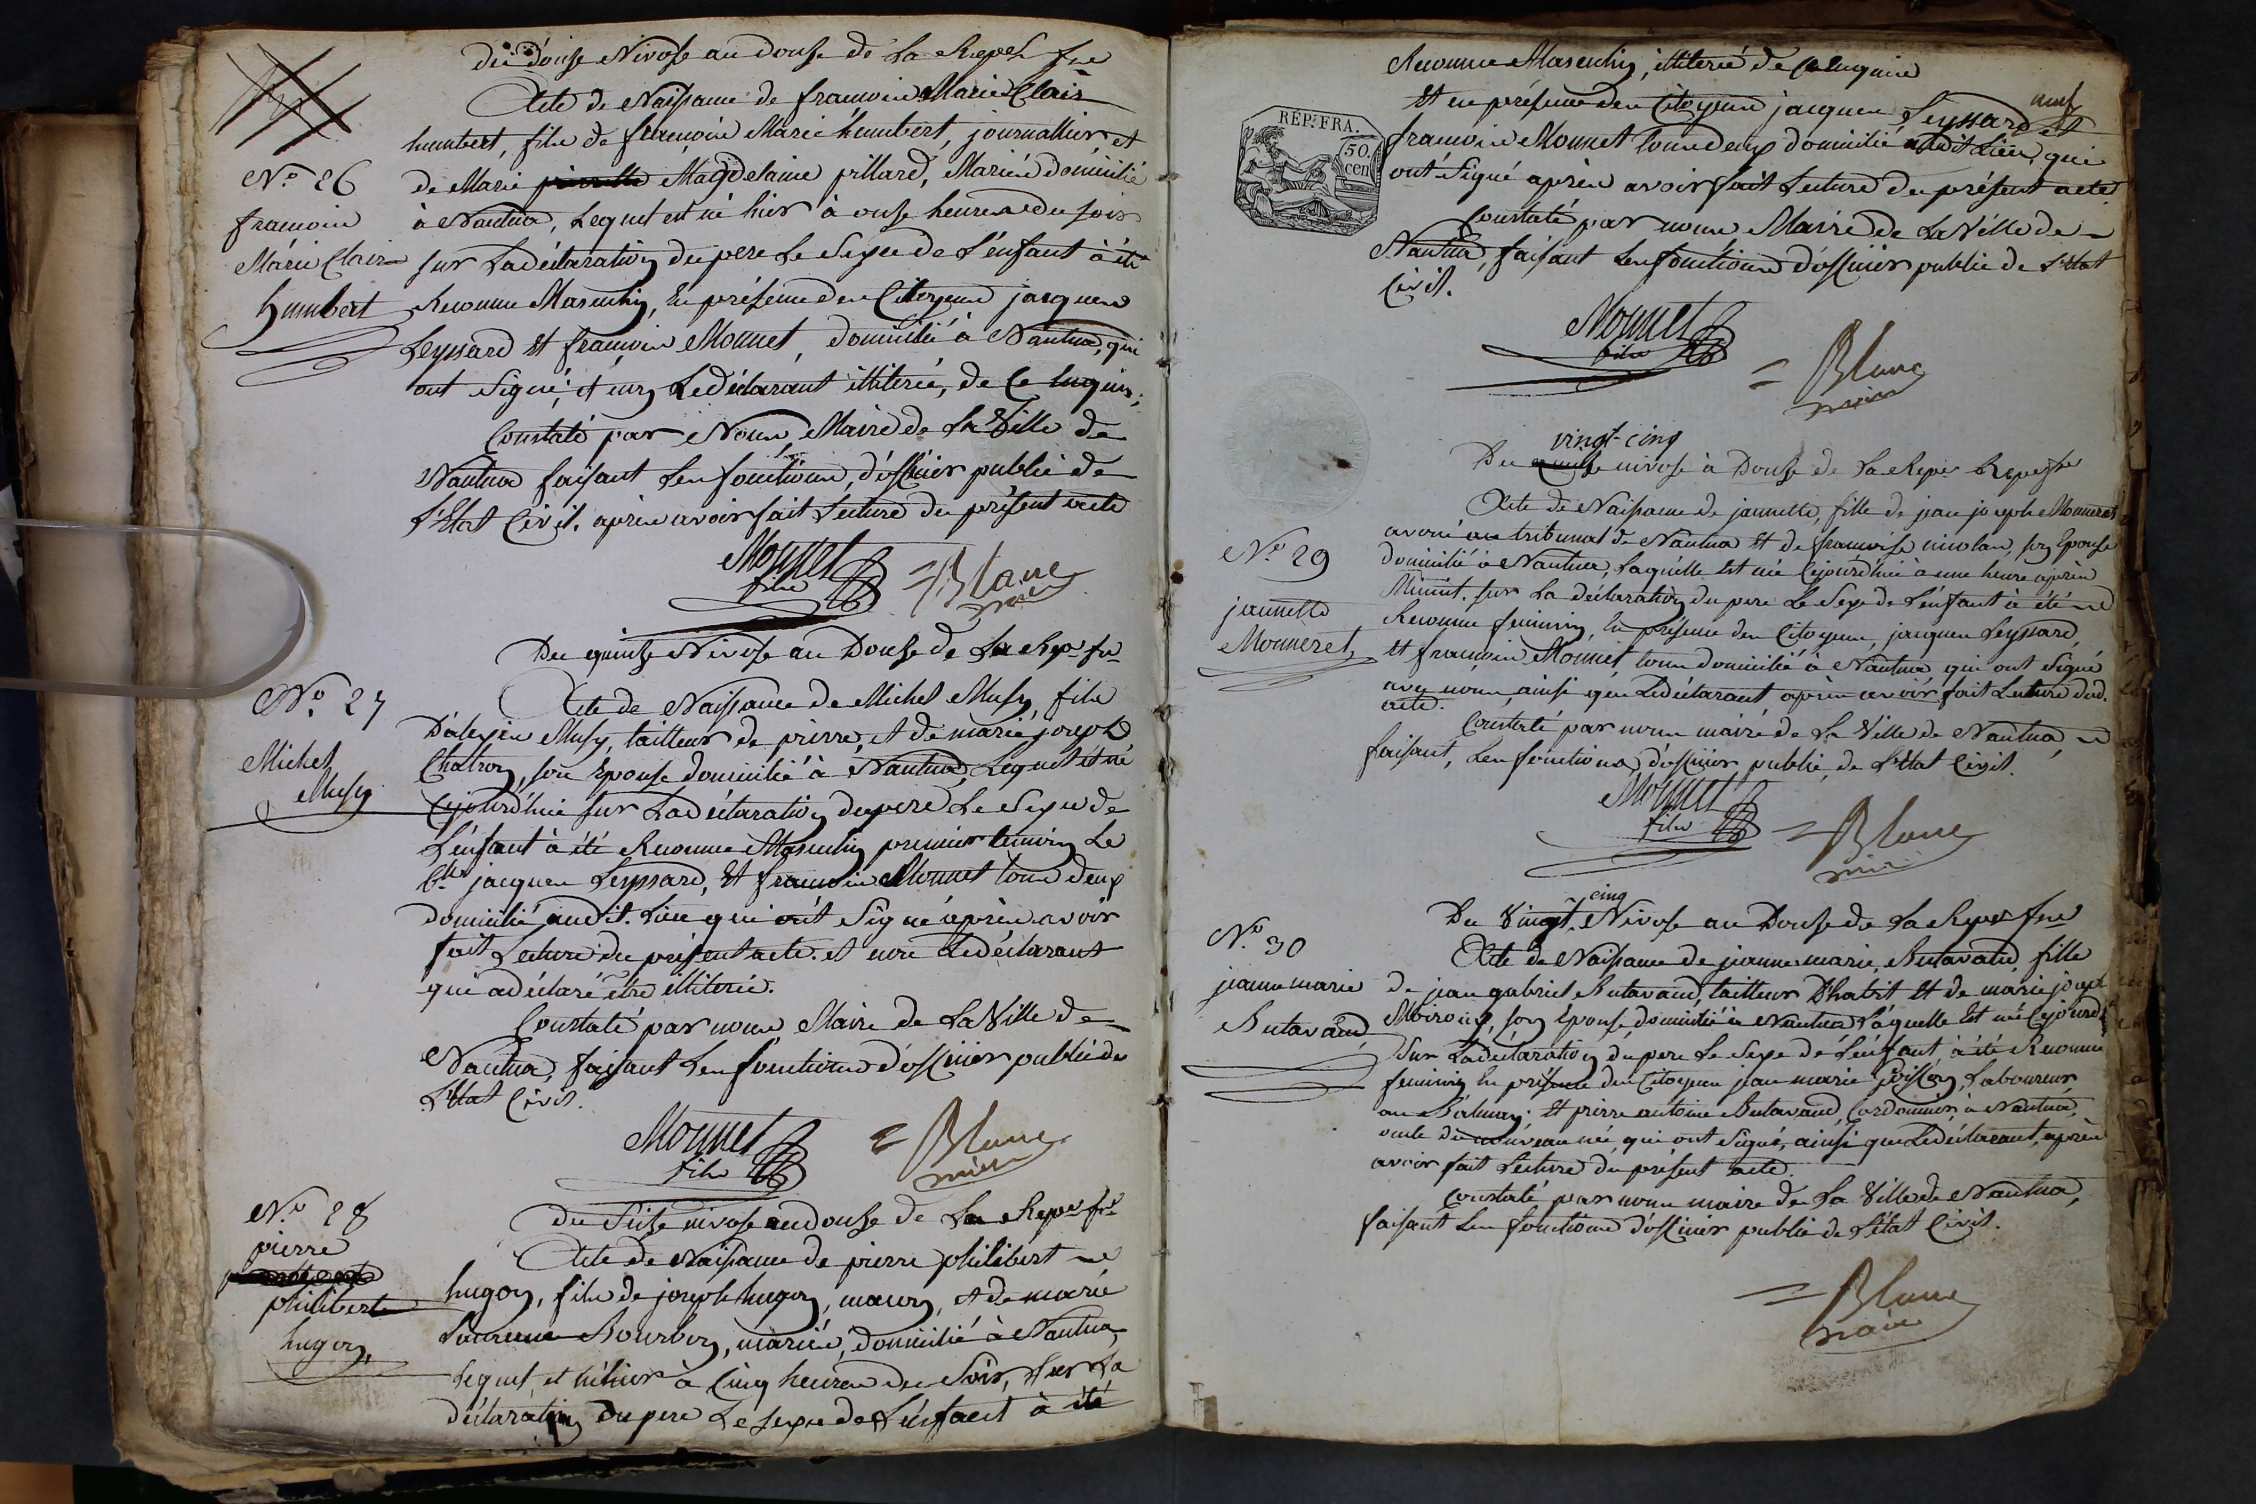 Du douse Nivose an douse de La Repe fse
Acte de Naissance de francois Marie Clair
humbert, fils de francois Marie humbert, journallier, et
N.º 26
de Marie Magdelaine pillard, Mariés domicilié
francois
à Nantua, Lequel est né hier à onse heures du soir
Marie Clair
sur La déclaration du pere Le Sexe de L'enfant à été
humbert
Reconnu Masculin, En présence des Citoyens jacques
Leyssard Et francois Monnet, domicilié à Nantua, qui
ont Signé, et non Le déclarant illiteré, de Ce Enquis,
Constaté par Nous Maire de La Ville de
Nantua faisant Les fonctions, d'officier public de
L'Etat Civil. après avoir fait Lecture du présent acte
Monnet
fils
= Blanc
maire
Du quinse Nivose an Douse de La Rep. fr.
N.º 27
Acte de Naissance de Michel Musy, fils
D'alexis Musy, tailleur de pierre, et de marie joseph
Michel
Musy
Chatron, son Epouse domicilié à Nantua, Lequel et né
Cejourd'hui sur La déclaration du pere Le Sexe de
L'enfant à été Reconnu Masculin premier temoin Le
C.en jacques Leyssard, Et francois Monnet tous deux
domicilié audit. Lieu qui ont Signé après avoir
fait Lecture du présent acte. et non Le déclarant
qui a déclaré être illiteré.
Constaté par nous Maire de La Ville de
Nantua, faisant Les fonctions d'officier public de
L'Etat Civil.
Monnet
fils
= Blanc
maire
N.º 28
Du Seise nivose an douse de La Repe fr.
pierre
Acte de Naissance de pierre philibert
philibert
hugon, fils de joseph hugon, maçon, et de marie
hugon,
Laurence Bourbon, mariés, domicilié à Nantua
Lequel et né hier à Cinq heures du Soir, Sur La
déclaration du pere Le sexe de L'enfant à été
Reconnu Masculin, illiteré de Ce Enquis
Et en présence des Citoyens jacques Leyssard et
neuf
REP. FRA.
50.
cen
francois Monnet tous deux domicilié audit Lieu, qui
ont Signé après avoir fait Lecture du présent acte.
Constaté par nous Maire de La Ville de
Nantua, faisant Les fonctions d'officier public de L'Etat
Civil.
Monnet
fils
= Blanc
maire
vingt-cinq
Du nivose à Douse de La Repe
Acte de Naissance de jannette, fille de jean joseph Monneret
avoué au tribunal de Nantua Et de francoise nicolas, son Epouse
N.º 29
domicilié à Nantua, Laquelle Est née Cejourd'hui à une heure après
Minuit. sur La déclaration du pere Le Sexe de L'enfant à été
jannette
Reconnu feminin, En présence des Citoyens jacques Leyssard,
Monneret
Et francois Monnet tous domicilié à Nantua qui ont Signé
avec nous, ainsi que Le déclarant après avoir fait Lecture dud.
acte.
Constaté par nous maire de La Ville de Nantua
faisant, Les fonctions, d'officier public, de L'Etat Civil.
Monnet
fils
= Blanc
maire
cinq
Du Vingt. Nivose an Douse de La Repe fse
N.º 30
Acte de Naissance de jeanne marie, Butavand, fille
jeanne marie
de jean gabriel Butavand, tailleur D'habit Et de marie joseph
Butavand
Moiroux, son Epouse, domicilié à Nantua Laquelle Est née Cejourd'
Sur La déclaration du pere Le Sexe de L'enfant, à été Reconnu
feminin En présence des Citoyens jean marie poisson, Laboureur
au Balmay. Et pierre antoine Butavand, Cordonnier, à Nantua,
oncle du nouveau né, qui ont Signé, ainsi que Le déclarant, après
avoir fait Lecture du présent acte.
Constaté par nous maire de La Ville de Nantua,
faisant Les fonctions d'officier public de L'état Civil.
= Blanc
maire